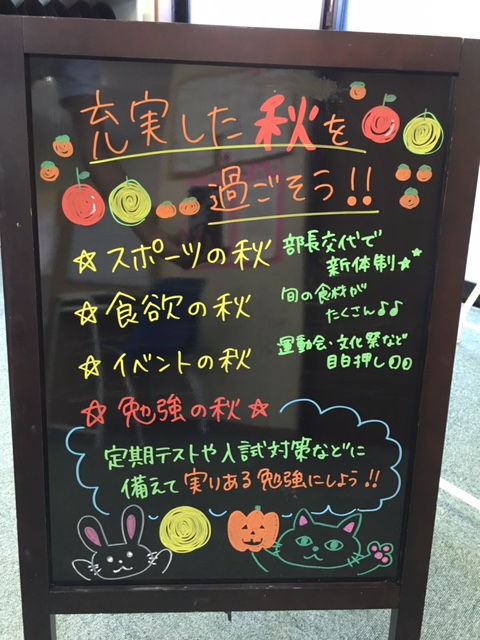 充実した秋を
過ごそう!!
☆スポーツの秋
部長交代で
新体制☆★
☆食欲の秋
旬の食材が
たくさん♪♪
☆イベントの秋
運動会・文化祭など
目白押し
☆勉強の秋☆
定期テストや入試対策などに
備えて実りある勉強にしよう!!